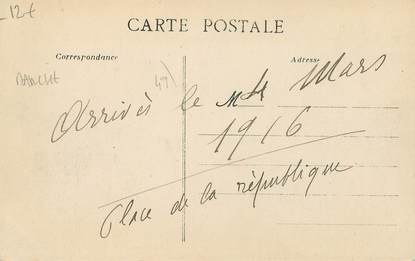 12€
CARTE POSTALE
Correspondance
Adresse
MANCHE
Arrivés le Mars
1916
Place de la république